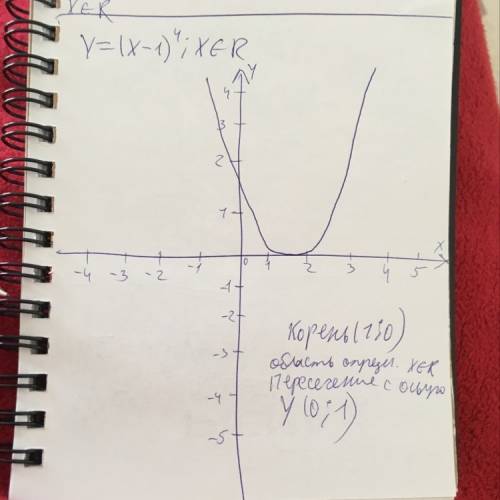 X∈R
Y=(X-1)⁴; X∈R
Y
4
3
2
1
X
-4 -3 -2 -1 0 1 2 3 4 5
-1
-2
-3
-4
-5
Корень (1;0)
область опредл. X∈R
Пересечение с осью
Y (0;1)